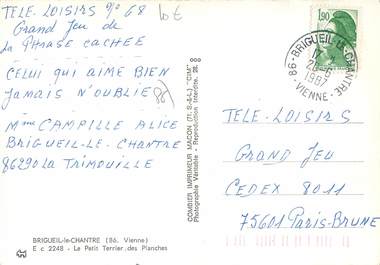 TELE-LOISIRS N° 68
Grand Jeu de
La PHRASE CACHEE
CELUI QUI AIME BIEN
Jamais N'OUBLIE
Mme CAMPILLE ALICE
BRIGUEIL-LE-CHANTRE
86290 La TRIMOUILLE
10€
BRIGUEIL-le-CHANTRE (86. Vienne)
E c 2248 - Le Petit Terrier des Planches
COMBIER IMPRIMEUR MACON (71-S.-&-L.) "CIM"
Photographie Véritable - Reproduction Interdite. 26.000
1,90
86 - BRIGUEIL-LE-CHANTRE
1987
- VIENNE -
TELE-LOISIRS
GRAND JEU
CEDEX 8011
75601 PARIS-BRUNE